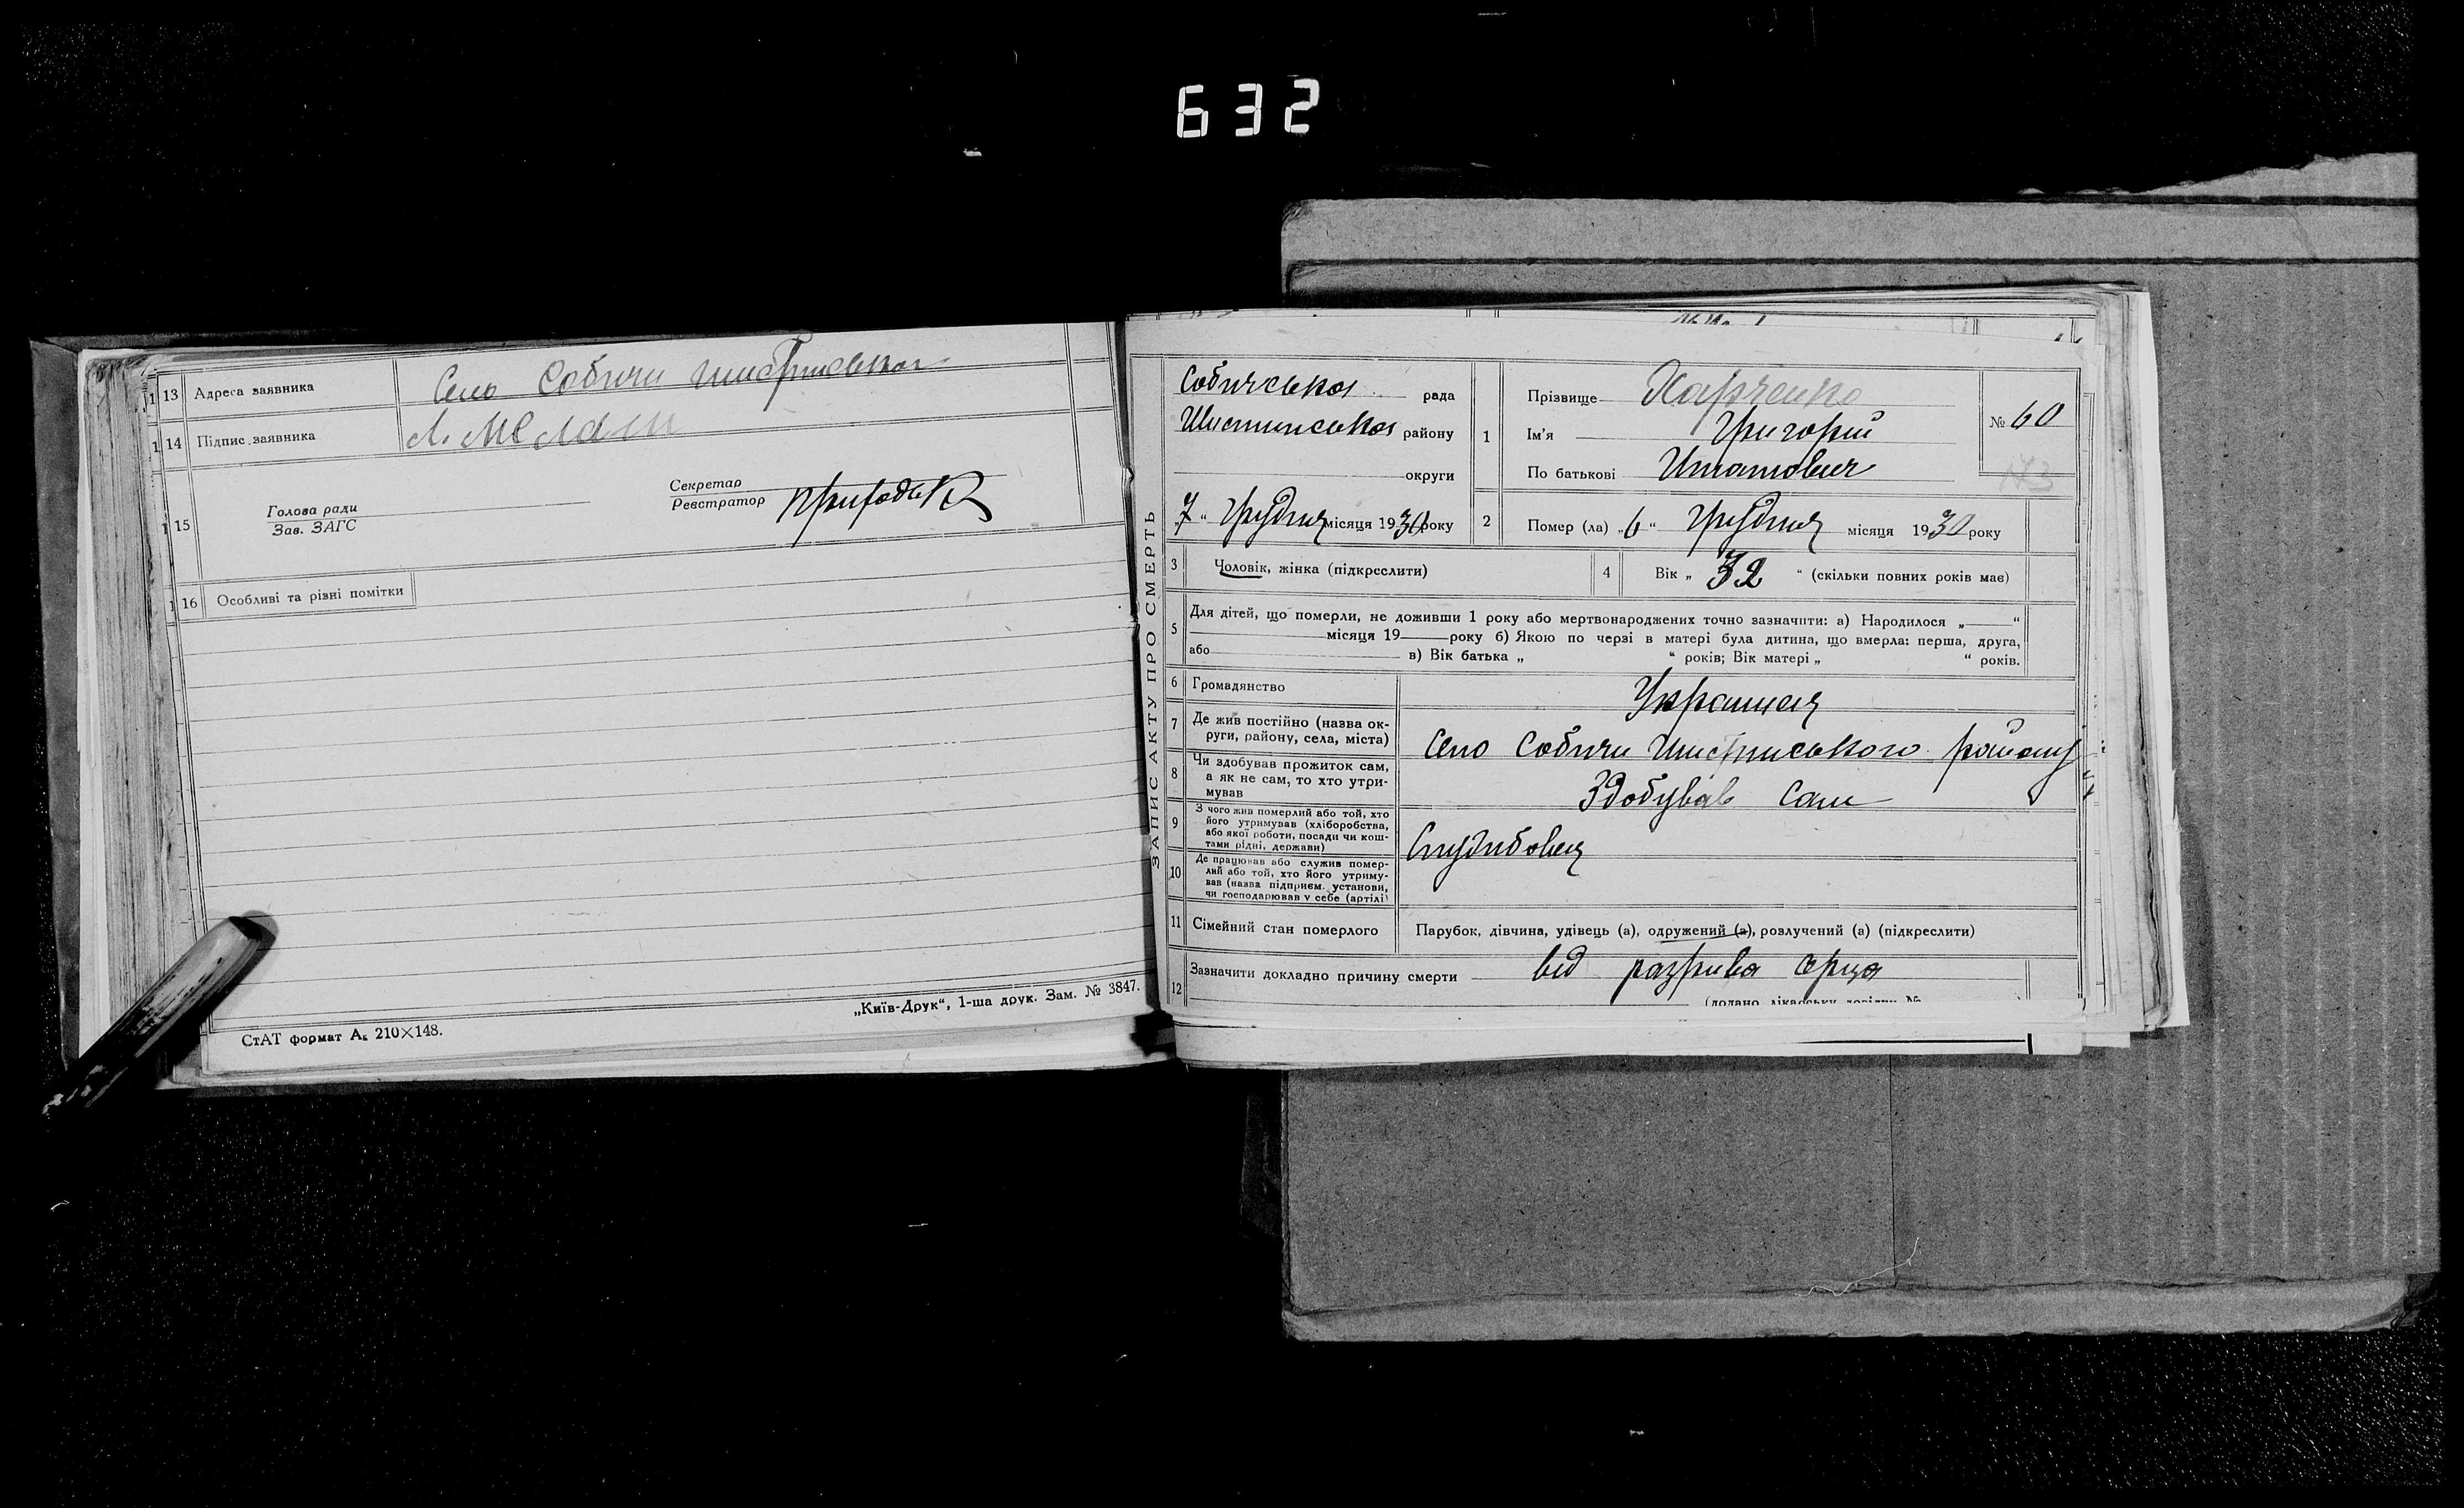 632
13 Адреса заявника Село Собичи Шистинськог
14 Підпис заявника
15 Голова ради
Зав. ЗАГС
Секретар
Реєстратор
16 Особливі та різні помітки
„Київ-Друк“, 1-ша друк. Зам. № 3847.
СтАТ формат А₅ 210×148.
ЗАПИС АКТУ ПРО СМЕРТЬ
Собичська рада
Шистинська району
округи
„7“ Грудня місяця 1930 року
1 Прізвище Харченко
Ім'я Григорій
По батькові
№ 60
173
2 Помер (ла) „6“ Грудня місяця 1930 року
3 Чоловік, жінка (підкреслити)
4 Вік „32“ (скільки повних років має)
5 Для дітей, що померли, не доживши 1 року або мертвонароджених точно зазначити: а) Народилося „ “
місяця 19 року б) Якою по черзі в матері була дитина, що вмерла: перша, друга,
або в) Вік батька „ “ років; Вік матері „ “ років.
6 Громадянство
7 Де жив постійно (назва ок-
руги, району, села, міста) Село Собичи Шистинського району
8 Чи здобував прожиток сам,
а як не сам, то хто утри-
мував Здобував сам
9 З чого жив померлий або той, хто
його утримував (хліборобства,
або якої роботи, посади чи кош-
тами рідні, держави)
10 Де працював або служив помер-
лий або той, хто його утриму-
вав (назва підприєм. установи,
чи господарював у себе (артілі)
11 Сімейний стан померлого Парубок, дівчина, удівець (а), одружений (а), розлучений (а) (підкреслити)
12 Зазначити докладно причину смерти від разрива серца
(додано лікарську довідку №